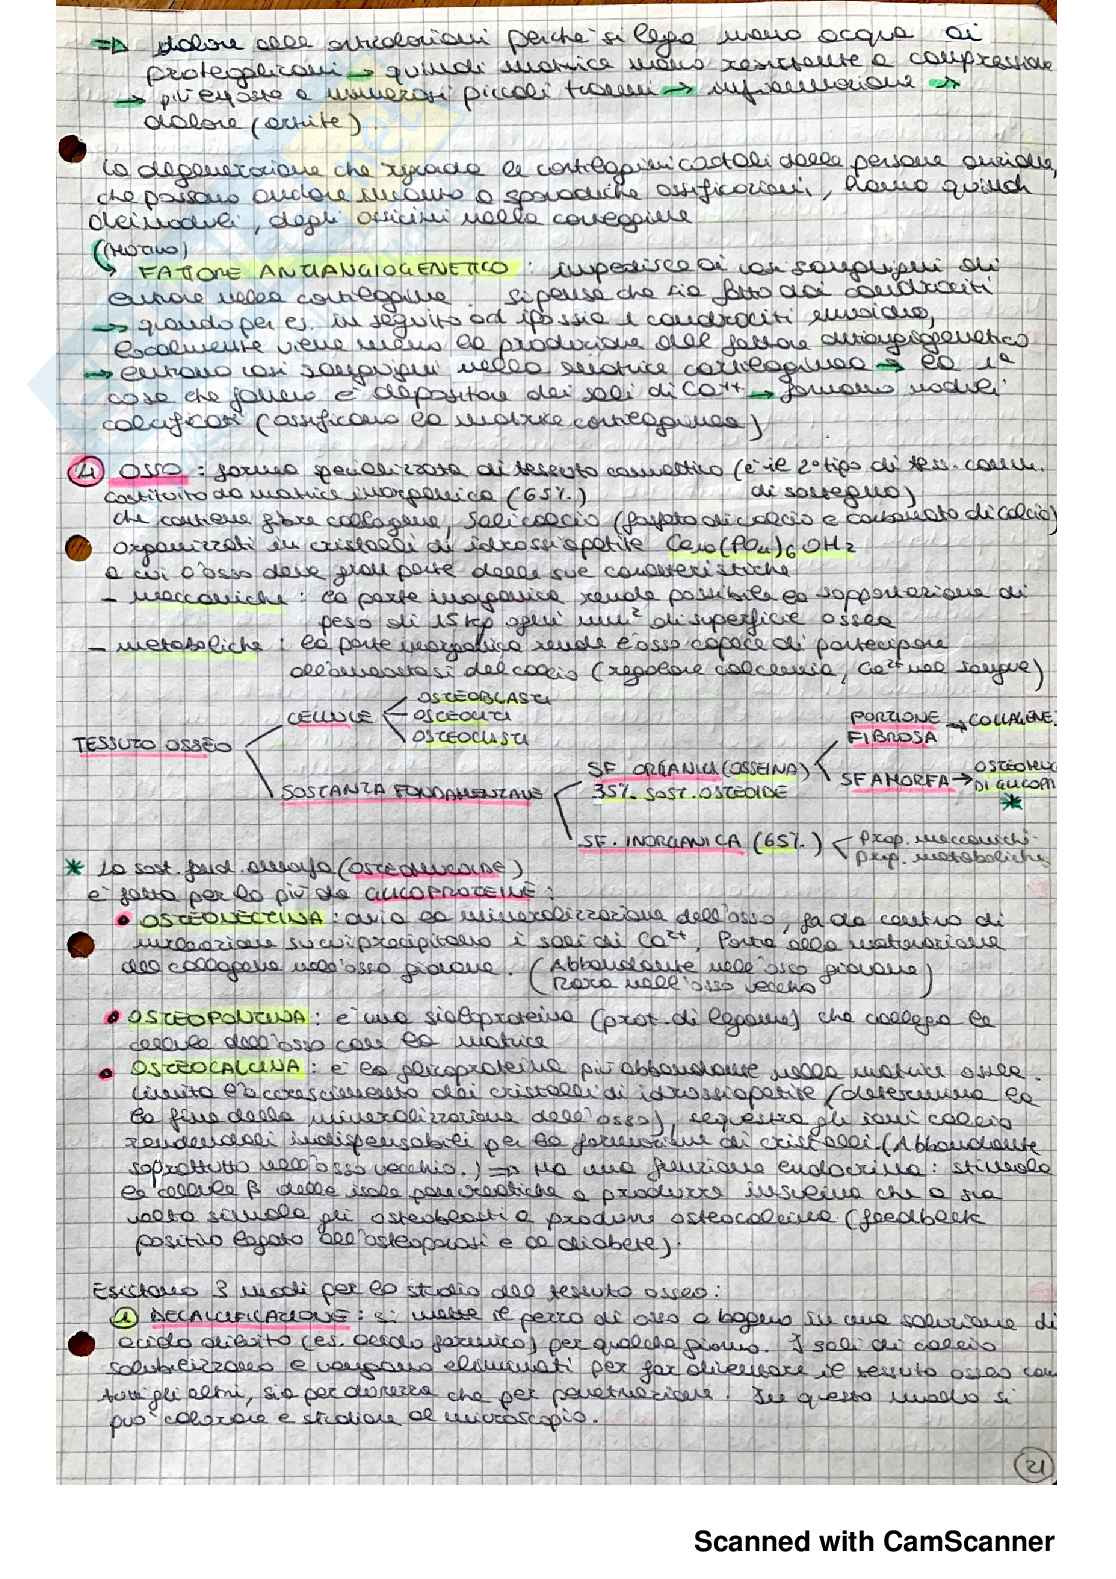 ⇒ dolore alle articolazioni perché si lega meno acqua ai
proteoglicani → quindi matrice meno resistente a compressione
→ più esposta a numerosi piccoli traumi → infiammazione →
dolore (artrite).
La degenerazione che riguarda le cartilagini costali delle persone anziane,
che possono andare incontro a sporadiche ossificazioni, hanno quindi
dei noduli, degli ossicini nella cartilagine
(MOTIVO)
↳ FATTORE ANTIANGIOGENETICO : impedisce ai vasi sanguigni di
entrare nella cartilagine. Si pensa che sia fatto dai condrociti
→ quando per es. in seguito ad ipossia i condrociti muoiono,
localmente viene meno la produzione del fattore antiangiogenetico
→ entrano vasi sanguigni nella matrice cartilaginea → la 1ª
cosa che fanno è depositare dei sali di Ca++ → formano noduli
calcificati (ossificano la matrice cartilaginea)
4 OSSO : forma specializzata di tessuto connettivo (è il 2° tipo di tess. conn.
costituito da matrice inorganica (65%) di sostegno)
che contiene fibre collagene, sali calcio (fosfato di calcio e carbonato di calcio)
organizzati in cristalli di idrossiapatite Ca10(PO4)6OH2
a cui l'osso deve gran parte delle sue caratteristiche
- meccaniche : la parte inorganica rende possibile la sopportazione di
peso di 15 kg ogni mm² di superficie ossea
- metaboliche : la parte inorganica rende l'osso capace di partecipare
all'omeostasi del calcio (regolare calcemia, Ca²⁺ nel sangue)
TESSUTO OSSEO
CELLULE
OSTEOBLASTI
OSTEOCITI
OSTEOCLASTI
SOSTANZA FONDAMENTALE
SF ORGANICA (OSSEINA)
35% SOST. OSTEOIDE
PORZIONE FIBROSA → COLLAGENE
SF AMORFA → OSTEOMUC
DI GLICOPR
*
SF. INORGANICA (65%)
Prop. meccaniche
Prop. metaboliche
* La sost. fond. amorfa (OSTEOMUCOIDE)
è fatta per lo più da GLICOPROTEINE :
• OSTEONECTINA : avvia la mineralizzazione dell'osso, fa da centro di
nucleazione su cui precipitano i sali di Ca²⁺. Parte della maturazione
del collagene nell'osso giovane. (Abbondante nell'osso giovane)
(Rara nell'osso vecchio)
• OSTEOPONTINA : è una sialoproteina (prot. di legame) che collega le
cellule dell'osso con la matrice
• OSTEOCALCINA : è la glicoproteina più abbondante nella matrice ossea.
Limita l'accrescimento dei cristalli di idrossiapatite (determina la
la fine della mineralizzazione dell'osso), sequestra gli ioni calcio
rendendoli indispensabili per la formazione dei cristalli. (Abbondante
soprattutto nell'osso vecchio.) ⇒ Ha una funzione endocrina : stimola
le cellule β delle isole pancreatiche a produrre insulina che a sua
volta stimola gli osteoblasti a produrre osteocalcina (feedback
positivo legato all'osteoporosi e al diabete).
Esistono 3 modi per lo studio del tessuto osseo :
1 DECALCIFICAZIONE : si mette il pezzo di osso a bagno in una soluzione di
acido diluito (es. acido formico) per qualche giorno. I sali di calcio
solubilizzano e vengono eliminati per far diventare il tessuto osseo com
tutti gli altri, sia per durezza che per penetrazione. In questo modo si
può colorare e studiare al microscopio.
21
Scanned with CamScanner